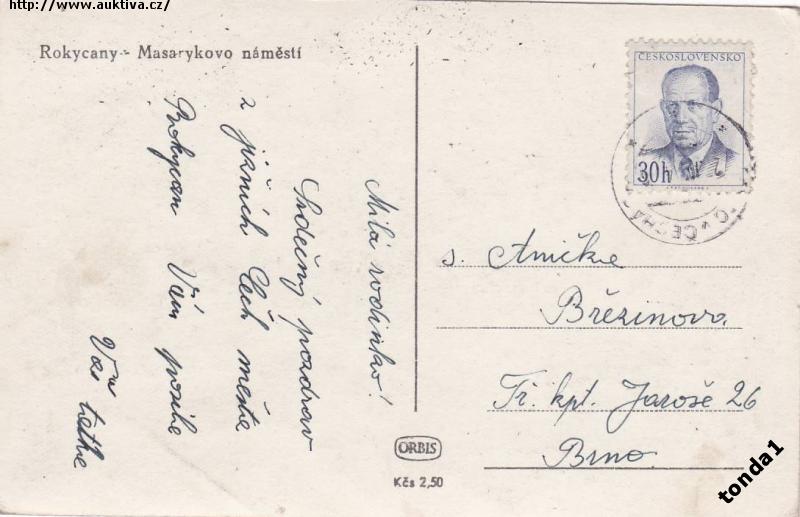 http://www.auktiva.cz/
Rokycany - Masarykovo náměstí
Milá rodinko!
Srdečný pozdrav
z jižních Čech města
Rokycan Vám posílá
Vaš tatke
ČESKOSLOVENSKO
30h
s. Anička
Březinova
Tř. kpt. Jaroše 26
Brno.
ORBIS
Kčs 2,50
tonda1